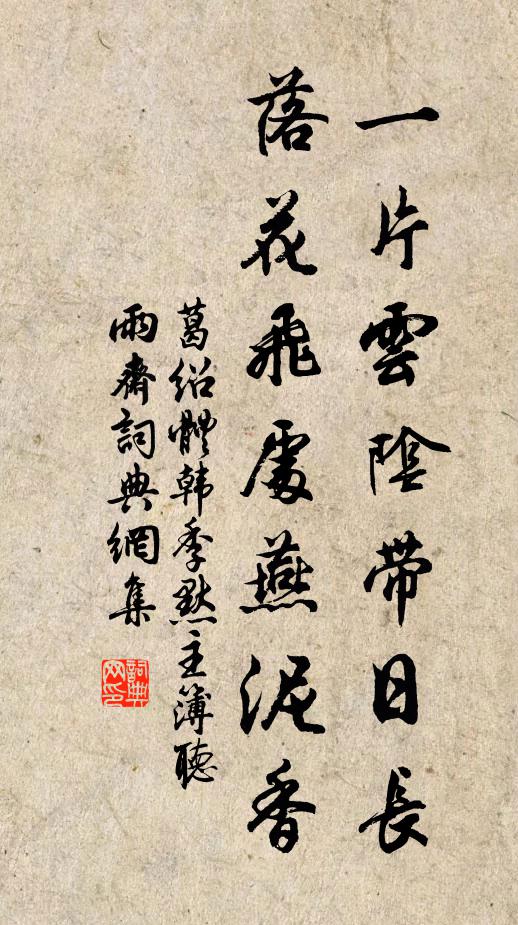 一片雲陰帶日長
落花飛處燕泥香
葛紹體韩季默主簿聽
雨齋詞典網集
詞典网印